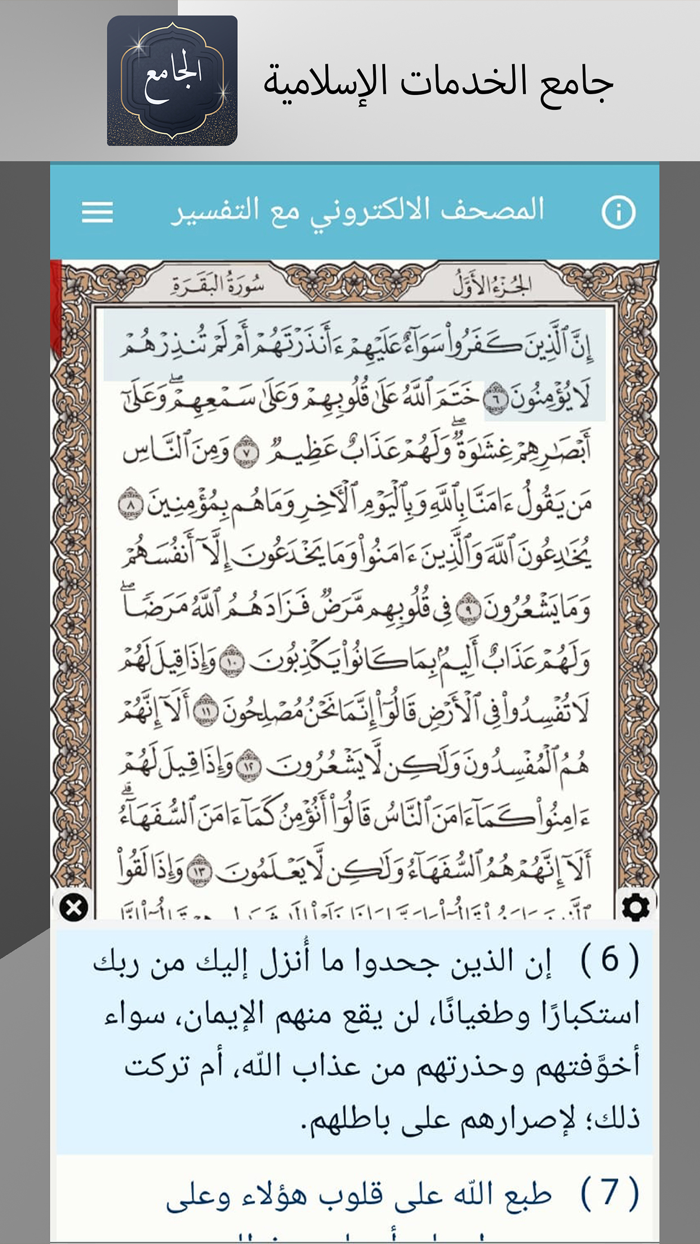 الجامع
جامع الخدمات الإسلامية
المصحف الالكتروني مع التفسير
الجُزْءُ الأَوَّلُ
سُورَةُ البَقَرَةِ
إِنَّ ٱلَّذِينَ كَفَرُوا۟ سَوَآءٌ عَلَيْهِمْ ءَأَنذَرْتَهُمْ أَمْ لَمْ تُنذِرْهُمْ
لَا يُؤْمِنُونَ ٦ خَتَمَ ٱللَّهُ عَلَىٰ قُلُوبِهِمْ وَعَلَىٰ سَمْعِهِمْ ۖ وَعَلَىٰٓ
أَبْصَٰرِهِمْ غِشَٰوَةٌ ۖ وَلَهُمْ عَذَابٌ عَظِيمٌ ٧ وَمِنَ ٱلنَّاسِ
مَن يَقُولُ ءَامَنَّا بِٱللَّهِ وَبِٱلْيَوْمِ ٱلْءَاخِرِ وَمَا هُم بِمُؤْمِنِينَ ٨
يُخَٰدِعُونَ ٱللَّهَ وَٱلَّذِينَ ءَامَنُوا۟ وَمَا يَخْدَعُونَ إِلَّآ أَنفُسَهُمْ
وَمَا يَشْعُرُونَ ٩ فِى قُلُوبِهِم مَّرَضٌ فَزَادَهُمُ ٱللَّهُ مَرَضًا ۖ
وَلَهُمْ عَذَابٌ أَلِيمٌۢ بِمَا كَانُوا۟ يَكْذِبُونَ ١٠ وَإِذَا قِيلَ لَهُمْ
لَا تُفْسِدُوا۟ فِى ٱلْأَرْضِ قَالُوٓا۟ إِنَّمَا نَحْنُ مُصْلِحُونَ ١١ أَلَآ إِنَّهُمْ
هُمُ ٱلْمُفْسِدُونَ وَلَٰكِن لَّا يَشْعُرُونَ ١٢ وَإِذَا قِيلَ لَهُمْ
ءَامِنُوا۟ كَمَآ ءَامَنَ ٱلنَّاسُ قَالُوٓا۟ أَنُؤْمِنُ كَمَآ ءَامَنَ ٱلسُّفَهَآءُ ۗ
أَلَآ إِنَّهُمْ هُمُ ٱلسُّفَهَآءُ وَلَٰكِن لَّا يَعْلَمُونَ ١٣ وَإِذَا لَقُوا۟
( 6 ) إن الذين جحدوا ما أُنزل إليك من ربك
استكبارًا وطغيانًا، لن يقع منهم الإيمان، سواء
أخوَّفتهم وحذرتهم من عذاب الله، أم تركت
ذلك؛ لإصرارهم على باطلهم.
( 7 ) طبع الله على قلوب هؤلاء وعلى